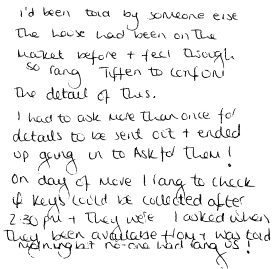 I'd been told by someone else
the house had been on the
market before + fell through
so rang Tiffen to confirm
the detail of this.
I had to ask more than once for
details to be sent out + ended
up going in to Ask for them!
On day of move I rang to check
if keys could be collected after
2.30pm + they were I asked when
They been available from + was told
morning but no-one had rang us!